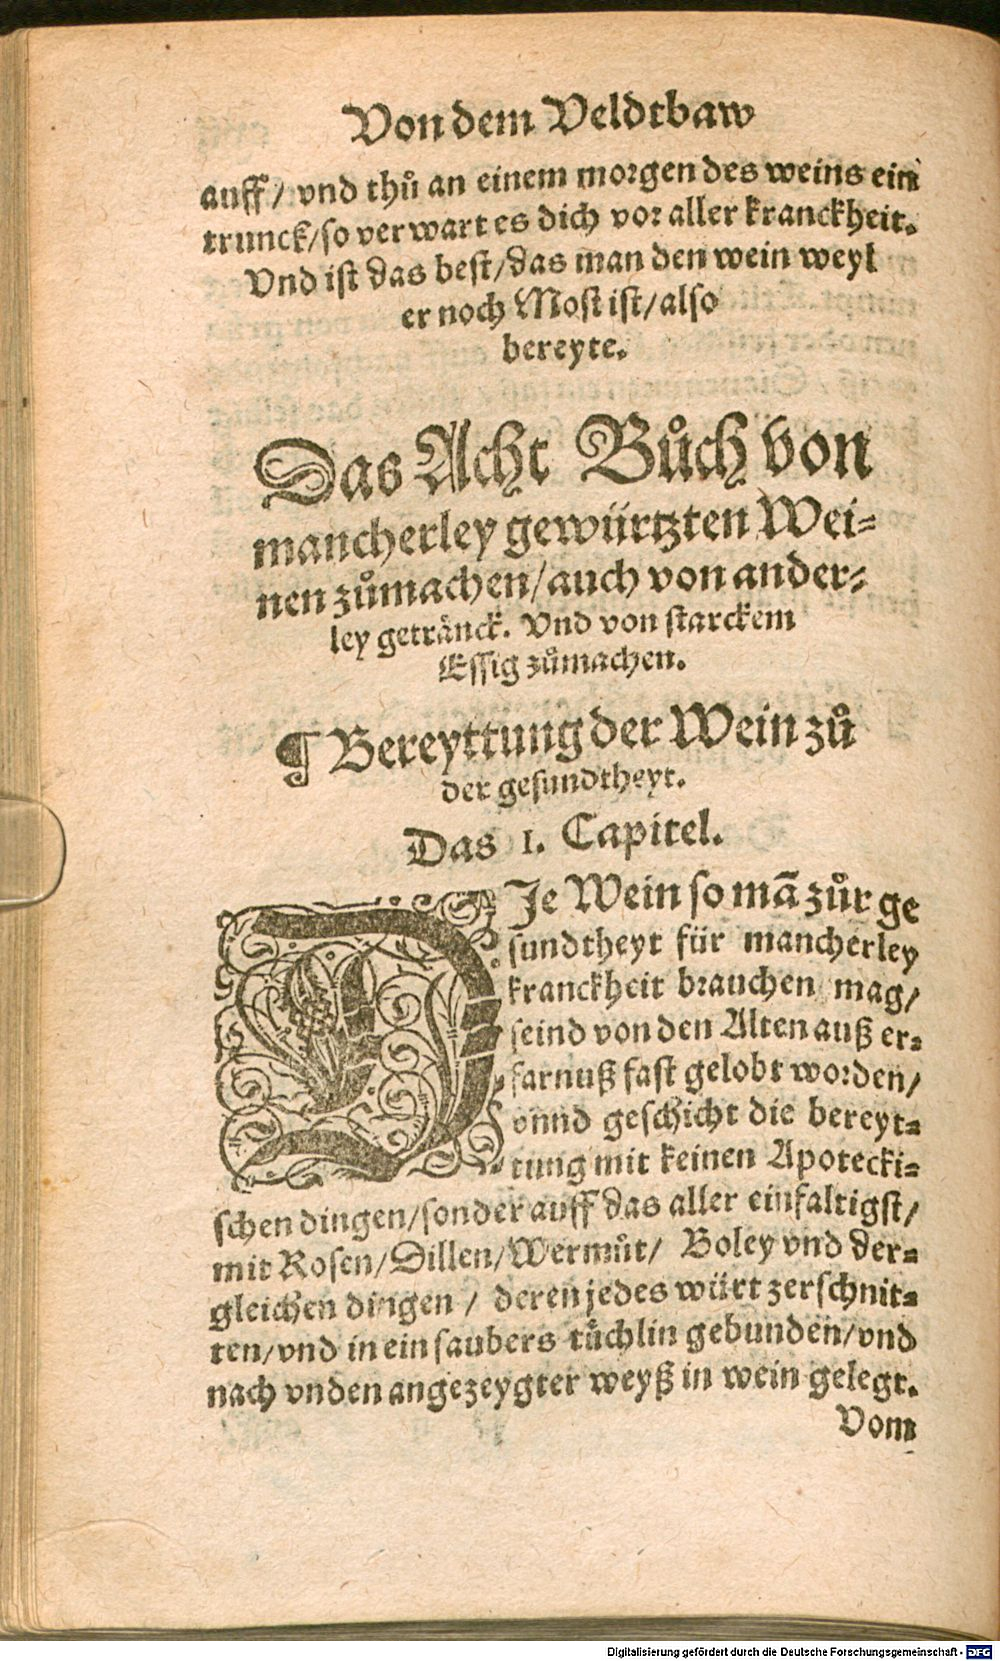 Von dem Veldtbaw
auff / vnd thů an einem morgen des weins ein
trunck/so verwart es dich vor aller kranckheit.
Vnd ist das best/das man den wein weyl
er noch Most ist/also
bereyte.
Das Acht Bůch von
mancherley gewürtzten Wei=
nen zůmachen/auch von ander=
ley getränck. Vnd von starckem
Essig zůmachen.
¶ Bereyttung der Wein zů
der gesundtheyt.
Das 1. Capitel.
DJe Wein so mā zůr ge
sundtheyt für mancherley
kranckheit brauchen mag/
seind von den Alten auß er=
farnuß fast gelobt worden/
vnnd geschicht die bereyt=
tung mit keinen Apotecki=
schen dingen/sonder auff das aller einfaltigst/
mit Rosen/Dillen/Wermůt/ Boley vnd der=
gleichen dingen / deren jedes würt zerschnit=
ten/vnd in ein saubers tůchlin gebunden/vnd
nach vnden angezeygter weyß in wein gelegt.
Vom
Digitalisierung gefördert durch die Deutsche Forschungsgemeinschaft - DFG